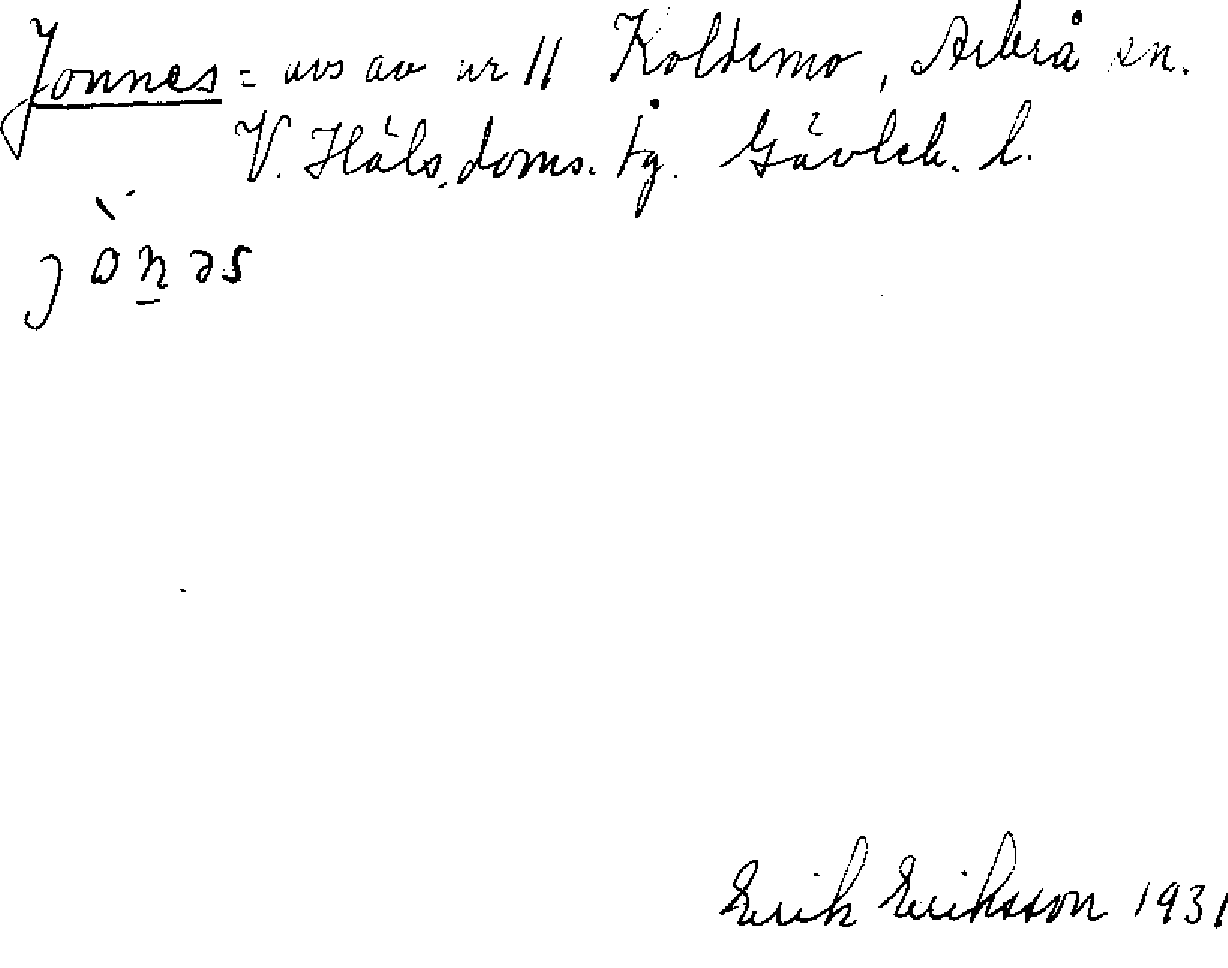 Jonnes = avs av nr 11 Koldemo, Arbrå sn.
V. Häls. doms. tg. Gävleb. l.
jònəs
Erik Eriksson 1931